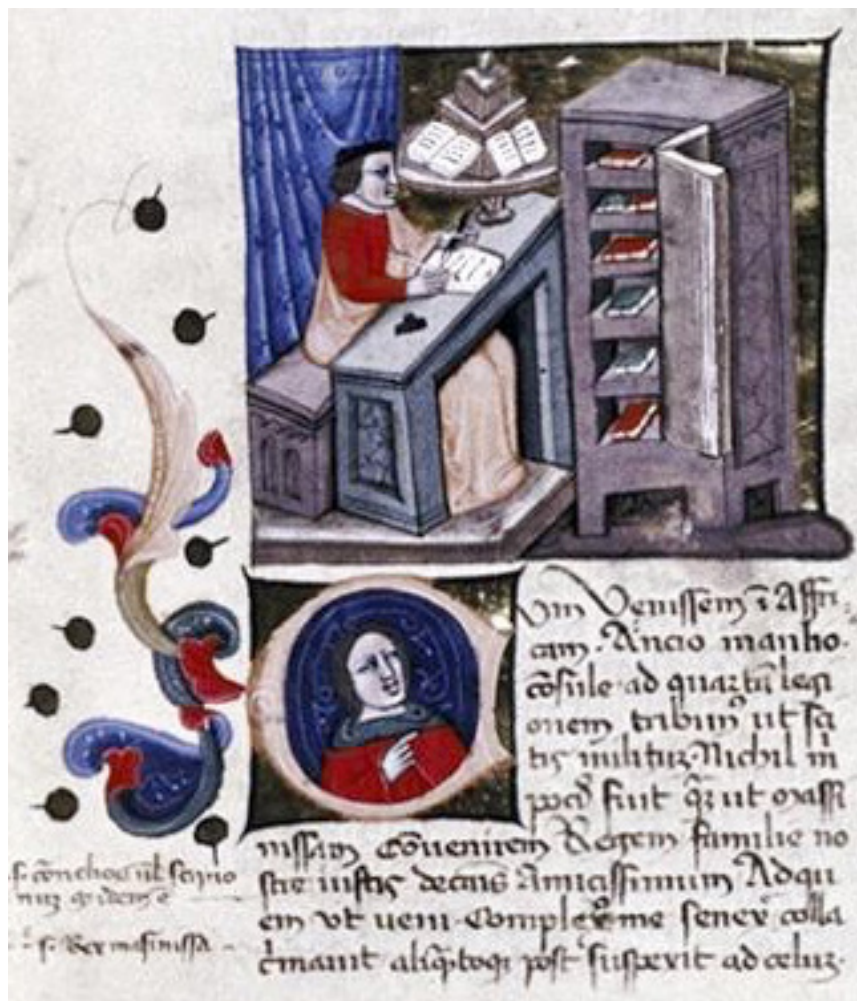 Cum Venissem ī Affri
cam. Ancio manho.
cōsule ad quartā legi
onem tribun⁹ ut sci
tis militū. Nichil m̄
fuit q̄ ut massi
nissam cōuenirem Regem familie no
stre iustis de causis Amicissimum Ad qu
em vt ueni. Complex me senex colla
c̄mauit aliq̄toq post suspexit ad celuz.
s. Rex masinissa